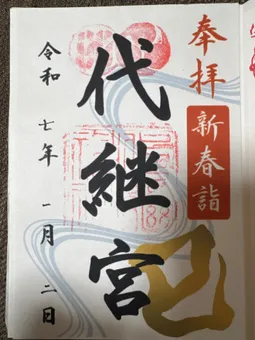 奉拝
新春詣
代継宮
巳
令和七年一月二日